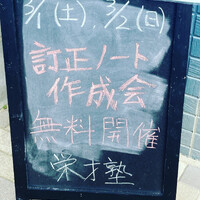 3/1(土),3/2(日)
訂正ノート
作成会
無料開催
栄才塾